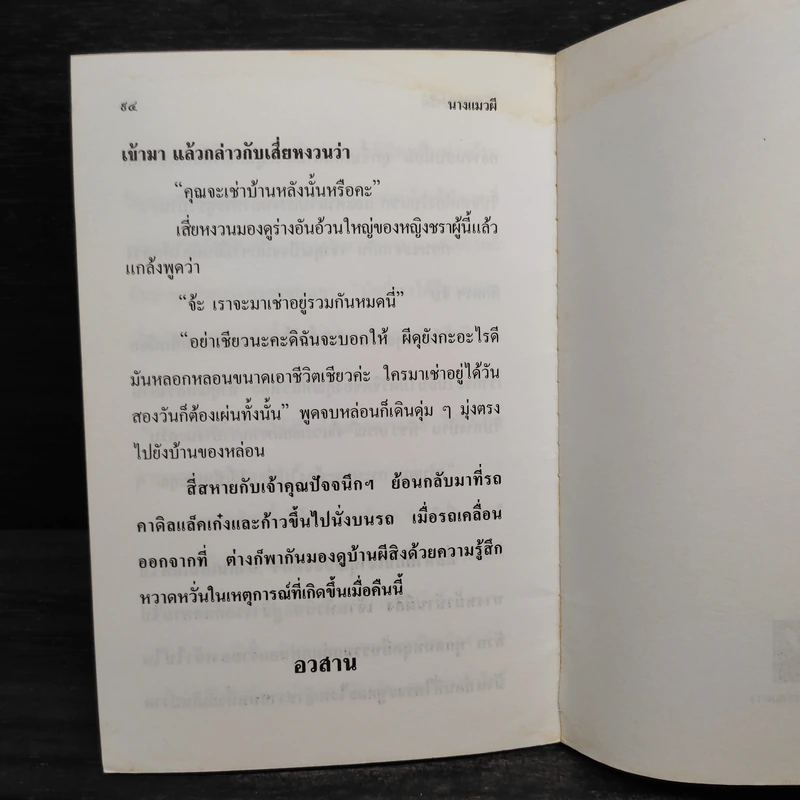 ๙๔ นางแมวผี
เข้ามา แล้วกล่าวกับเสี่ยหงวนว่า
“คุณจะเช่าบ้านหลังนั้นหรือคะ”
เสี่ยหงวนมองดูร่างอันอ้วนใหญ่ของหญิงชราผู้นี้แล้ว
แกล้งพูดว่า
“จ้ะ เราจะมาเช่าอยู่รวมกันหมดนี่”
“อย่าเชียวนะคะดิฉันจะบอกให้ ผีดุยังกะอะไรดี
มันหลอกหลอนขนาดเอาชีวิตเชียวค่ะ ใครมาเช่าอยู่ได้วัน
สองวันก็ต้องเผ่นทั้งนั้น” พูดจบหล่อนก็เดินดุ่ม ๆ มุ่งตรง
ไปยังบ้านของหล่อน
สี่สหายกับเจ้าคุณปัจจนึกฯ ย้อนกลับมาที่รถ
คาดิลแล็คเก๋งและก้าวขึ้นไปนั่งบนรถ เมื่อรถเคลื่อน
ออกจากที่ ต่างก็พากันมองดูบ้านผีสิงด้วยความรู้สึก
หวาดหวั่นในเหตุการณ์ที่เกิดขึ้นเมื่อคืนนี้
อวสาน